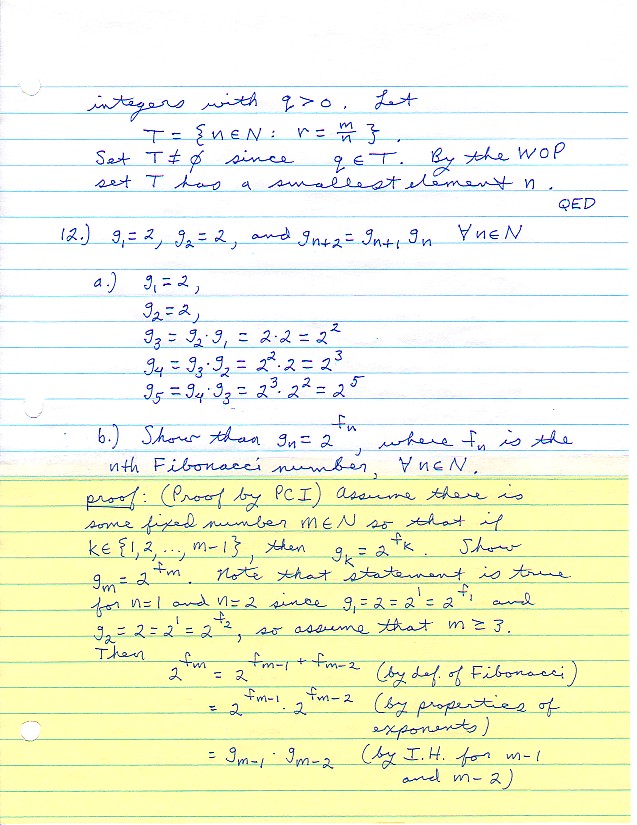 integers with q > 0. Let
T = {n∈N: r = m/n}.
Set T ≠ ∅ since q ∈ T. By the WOP
set T has a smallest element n.
QED
12.) g₁ = 2, g₂ = 2, and gₙ₊₂ = gₙ₊₁ gₙ ∀n∈N
a.) g₁ = 2,
g₂ = 2,
g₃ = g₂·g₁ = 2·2 = 2²
g₄ = g₃·g₂ = 2²·2 = 2³
g₅ = g₄·g₃ = 2³·2² = 2⁵
b.) Show than gₙ = 2^{fₙ}, where fₙ is the
nth Fibonacci number, ∀n∈N.
proof: (Proof by PCI) Assume there is
some fixed number m∈N so that if
k∈{1,2,...,m-1}, then g_k = 2^{f_k}. Show
g_m = 2^{f_m}. Note that statement is true
for n=1 and n=2 since g₁ = 2 = 2¹ = 2^{f₁} and
g₂ = 2 = 2¹ = 2^{f₂}, so assume that m ≥ 3.
Then
2^{f_m} = 2^{f_{m-1} + f_{m-2}} (by def. of Fibonacci)
= 2^{f_{m-1}} · 2^{f_{m-2}} (by properties of
exponents)
= g_{m-1} · g_{m-2} (by I.H. for m-1
and m-2)